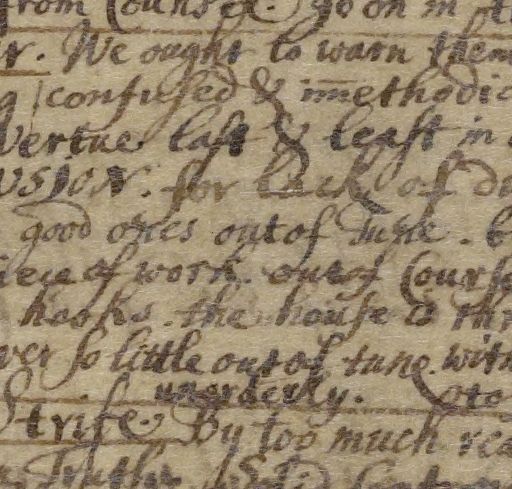 from Counsel. go on in
r. We ought to warn them
confused & immethodic
Vertue last & least in
USION. for lack of
good ones out of tune.
piece of work. out of Course
hooks. the house
ver so little out of tune. witn
unorderly.
Strife By too much
Truth